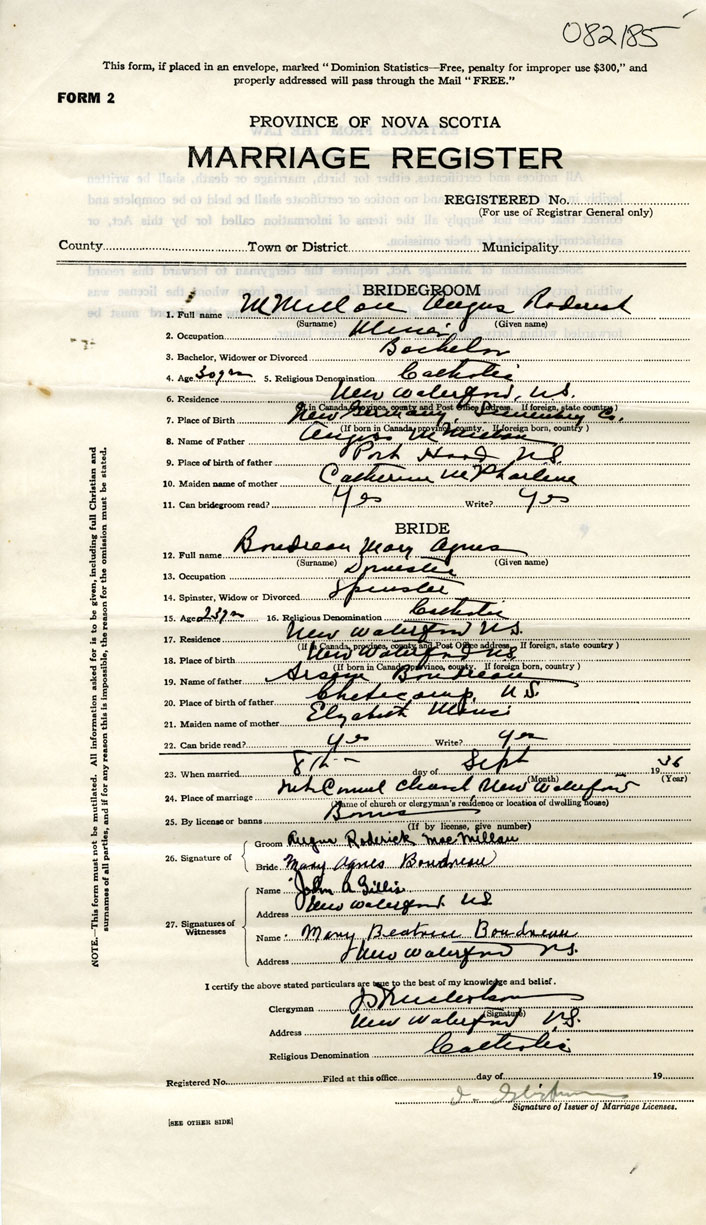 082185
This form, if placed in an envelope, marked "Dominion Statistics—Free, penalty for improper use $300," and
properly addressed will pass through the Mail "FREE."
FORM 2
PROVINCE OF NOVA SCOTIA
MARRIAGE REGISTER
REGISTERED No.
(For use of Registrar General only)
County Town or District Municipality
BRIDEGROOM
1. Full name McMillan Angus Roderick
(Surname) (Given name)
2. Occupation Miner
3. Bachelor, Widower or Divorced Bachelor
4. Age 30 yrs 5. Religious Denomination Catholic
6. Residence New Waterford, N.S.
(If in Canada, province, county and Post Office address. If foreign, state country)
7. Place of Birth New Germany, Co.
(If born in Canada, province, county. If foreign born, country)
8. Name of Father Angus McMillan
9. Place of birth of father Port Hood N.S.
10. Maiden name of mother Catherine
11. Can bridegroom read? Yes Write? Yes
BRIDE
12. Full name Boudreau Mary Agnes
(Surname) (Given name)
13. Occupation Domestic
14. Spinster, Widow or Divorced Spinster
15. Age 23 yrs 16. Religious Denomination Catholic
17. Residence New Waterford N.S.
(If in Canada, province, county and Post Office address. If foreign, state country)
18. Place of birth New Waterford N.S.
(If born in Canada, province, county. If foreign born, country)
19. Name of father Boudreau
20. Place of birth of father Cheticamp, N.S.
21. Maiden name of mother
22. Can bride read? Yes Write? Yes
23. When married 8th day of Sept 1936
(Month) (Year)
24. Place of marriage Mt. Carmel Church New Waterford
(Name of church or clergyman's residence or location of dwelling house)
25. By license or banns Banns
(If by license, give number)
26. Signature of
Groom Angus Roderick MacMillan
Bride Mary Agnes Boudreau
27. Signatures of Witnesses
Name John A Gillis
Address New Waterford NS
Name Mary Beatrice Boudreau
Address New Waterford N.S.
I certify the above stated particulars are true to the best of my knowledge and belief.
Clergyman
(Signature)
Address New Waterford N.S.
Religious Denomination Catholic
Registered No. Filed at this office day of 19
Signature of Issuer of Marriage Licenses.
[SEE OTHER SIDE]
NOTE.—This form must not be mutilated. All information asked for is to be given, including full Christian and
surnames of all parties, and if for any reason this is impossible, the reason for the omission must be stated.